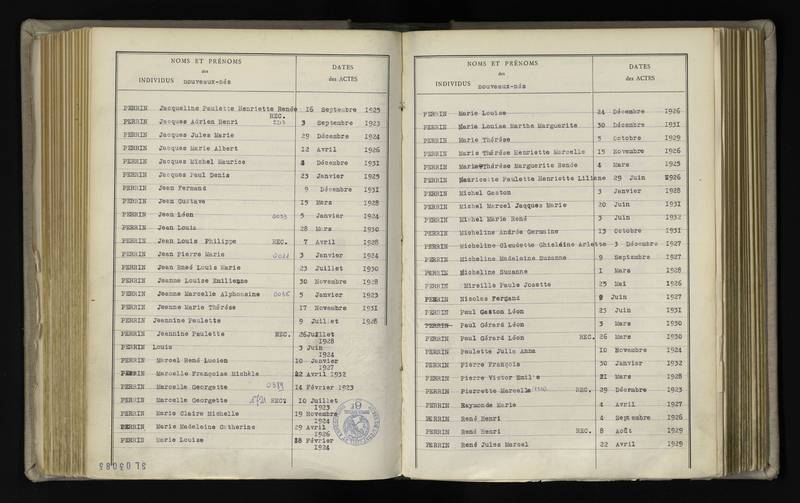 NOMS ET PRÉNOMS
des
INDIVIDUS nouveaux-nés
DATES
des ACTES
PERRIN Jacqueline Paulette Henriette Renée 16 Septembre 1925
PERRIN Jacques Adrien Henri REC. 3 Septembre 1923
PERRIN Jacques Jules Marie 29 Décembre 1924
PERRIN Jacques Marie Albert 12 Avril 1926
PERRIN Jacques Michel Maurice 8 Décembre 1931
PERRIN Jacques Paul Denis 23 Janvier 1925
PERRIN Jean Fernand 9 Décembre 1931
PERRIN Jean Gustave 15 Mars 1928
PERRIN Jean Léon 0053 5 Janvier 1924
PERRIN Jean Louis 28 Mars 1930
PERRIN Jean Louis Philippe REC. 7 Avril 1928
PERRIN Jean Pierre Marie 0021 3 Janvier 1924
PERRIN Jean René Louis Marie 23 Juillet 1930
PERRIN Jeanne Louise Emilienne 30 Novembre 1928
PERRIN Jeanne Marcelle Alphonsine 5 Janvier 1923
PERRIN Jeanne Marie Thérèse 17 Novembre 1931
PERRIN Jeannine Paulette 9 Juillet 1928
PERRIN Jeannine Paulette REC. 26 Juillet 1928
PERRIN Louis 3 Juin 1924
PERRIN Marcel René Lucien 10 Janvier 1927
PERRIN Marcelle Françoise Michèle 22 Avril 1932
PERRIN Marcelle Georgette 0389 14 Février 1923
PERRIN Marcelle Georgette REC. 10 Juillet 1923
PERRIN Marie Claire Michelle 19 Novembre 1924
PERRIN Marie Madeleine Catherine 29 Avril 1926
PERRIN Marie Louise 28 Février 1924
NOMS ET PRÉNOMS
des
INDIVIDUS nouveaux-nés
DATES
des ACTES
PERRIN Marie Louise 24 Décembre 1926
PERRIN Marie Louise Marthe Marguerite 30 Décembre 1931
PERRIN Marie Thérèse 5 Octobre 1929
PERRIN Marie Thérèse Henriette Marcelle 15 Novembre 1926
PERRIN Marie Thérèse Marguerite Renée 4 Mars 1925
PERRIN Mauricette Paulette Henriette Liliane 29 Juin 1926
PERRIN Michel Gaston 3 Janvier 1928
PERRIN Michel Marcel Jacques Marie 20 Juin 1931
PERRIN Michel Marie René 3 Juin 1932
PERRIN Micheline Andrée Germaine 13 Octobre 1931
PERRIN Micheline Claudette Ghislaine Arlette 3 Décembre 1927
PERRIN Micheline Madeleine Suzanne 9 Septembre 1927
PERRIN Micheline Suzanne 1 Mars 1928
PERRIN Mireille Paule Josette 25 Mai 1926
PERRIN Nicolas Fernand 2 Juin 1927
PERRIN Paul Gaston Léon 23 Juin 1931
PERRIN Paul Gérard Léon 3 Mars 1930
PERRIN Paul Gérard Léon REC. 26 Mars 1930
PERRIN Paulette Julie Anna 10 Novembre 1924
PERRIN Pierre François 30 Janvier 1932
PERRIN Pierre Victor Emile 21 Mars 1928
PERRIN Pierrette Marcelle REC. 29 Décembre 1923
PERRIN Raymonde Marie 4 Avril 1927
PERRIN René Henri 4 Septembre 1926
PERRIN René Henri REC. 8 Août 1929
PERRIN René Jules Marcel 22 Avril 1929